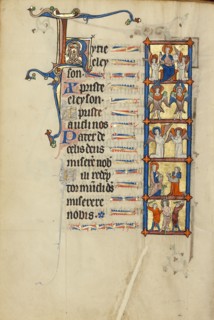 Kyrie
eley
son.
Xpriste
eleyson.
priste
audi nos
Pater de
celis deus
miserere nob
ili redep
tor mudi ds
miserere
nobis.